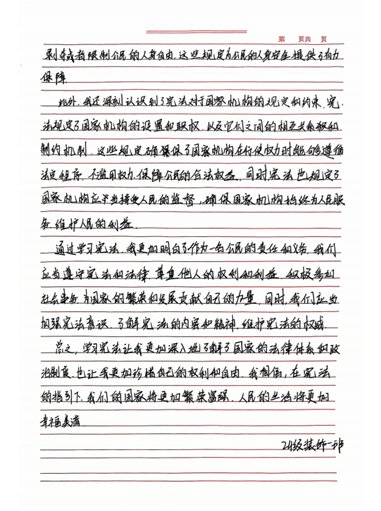 第 页共 页
剥夺或者限制公民的人身自由,这些规定为公民的人身安全提供了有力
保障。
此外,我还深刻认识到了宪法对于国家机构的规定和约束。宪
法规定了国家机构的设置和职权,以及它们之间的相互关系和
制约机制。这些规定确保了国家机构在行使权力时能够遵循
法定程序,不滥用权力,保障公民的合法权益。同时宪法也规定了
国家机构应当接受人民的监督,确保国家机构始终为人民服
务,维护人民的利益。
通过学习宪法,我更加明白了作为一名公民的责任和义务。我们
应当遵守宪法和法律,尊重他人的权利和利益,积极参加
社会事务,为国家的繁荣和发展贡献自己的力量。同时,我们应当
加强宪法意识,了解宪法的内容和精神,维护宪法的权威。
总之,学习宪法让我更加深入地了解了国家的法律体系和政
治制度,也让我更加珍惜自己的权利和自由。我相信,在宪法
的指引下,我们的国家将更加繁荣富强,人民的生活将更加
幸福美满。
21级装饰一班